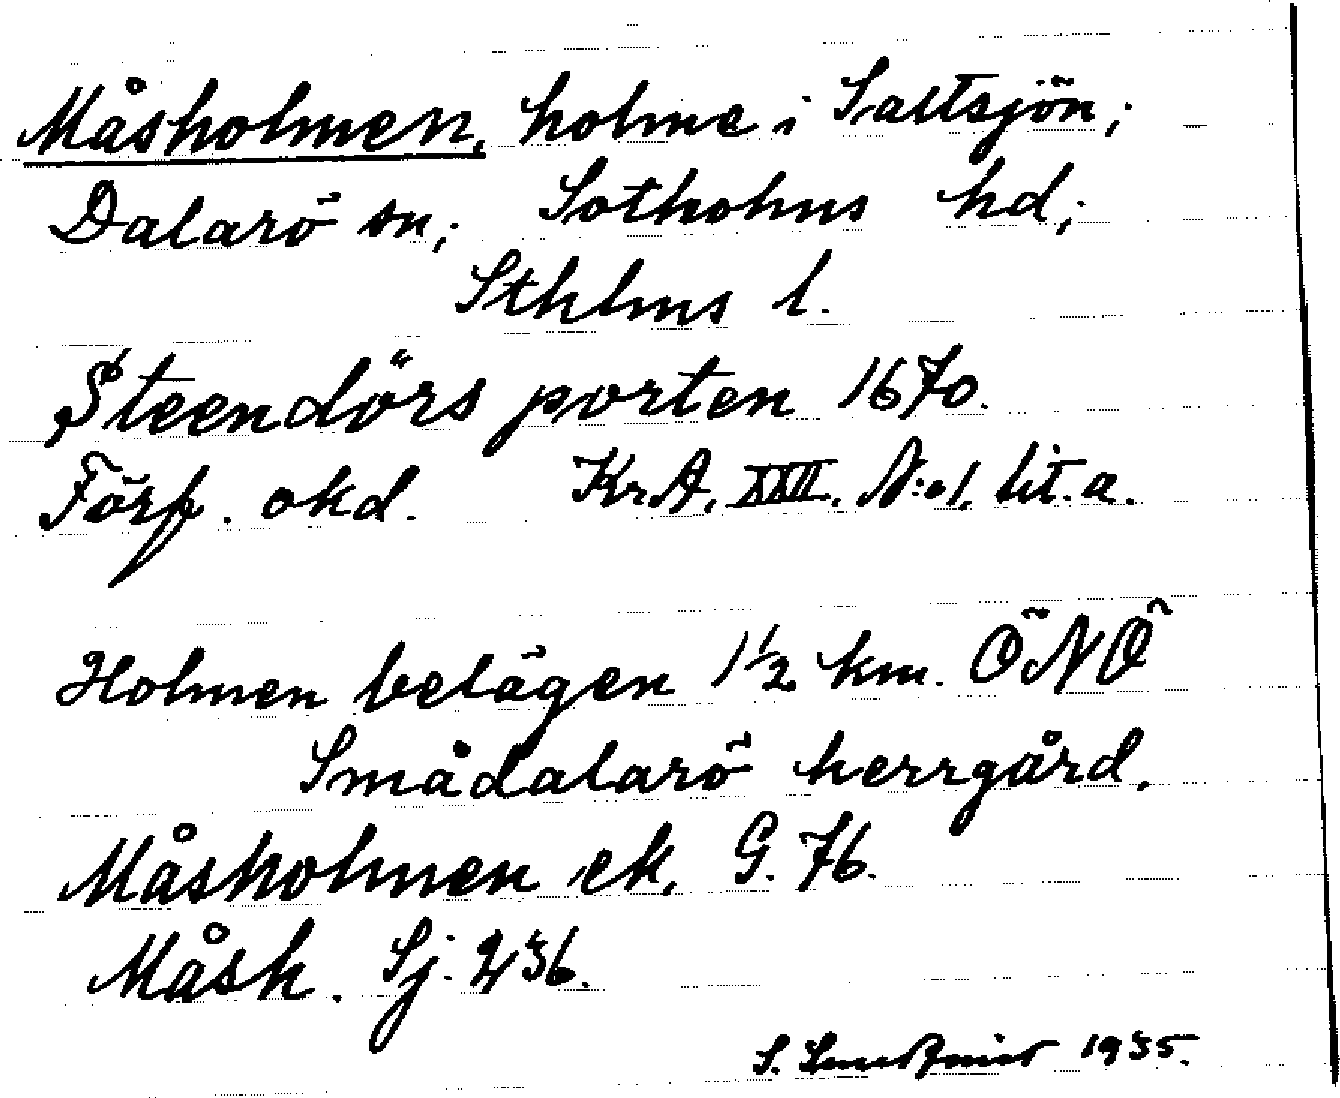 Måsholmen, holme i Saltsjön;
Dalarö sn; Sotholms hd;
Sthlms l.
Steendörs porten 1670.
Förf. okd. Kr.A. XXII. N:o 1. lit. a.
Holmen belägen 1 1/2 km. ÖNÖ
Smådalarö herrgård.
Måsholmen ek. G. 76.
Måsh. Sj. 236.
S. 1935.